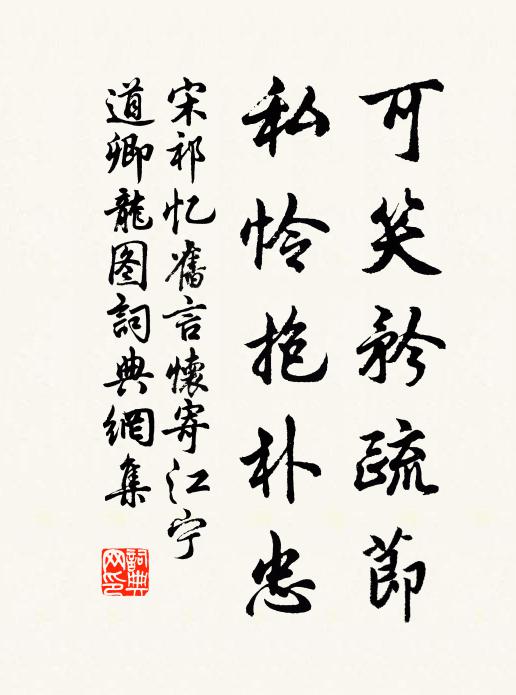 可笑矜疏節
私怜抱朴忠
宋祁忆舊言懷寄江宁
道卿龍图詞典網集
詞典网印